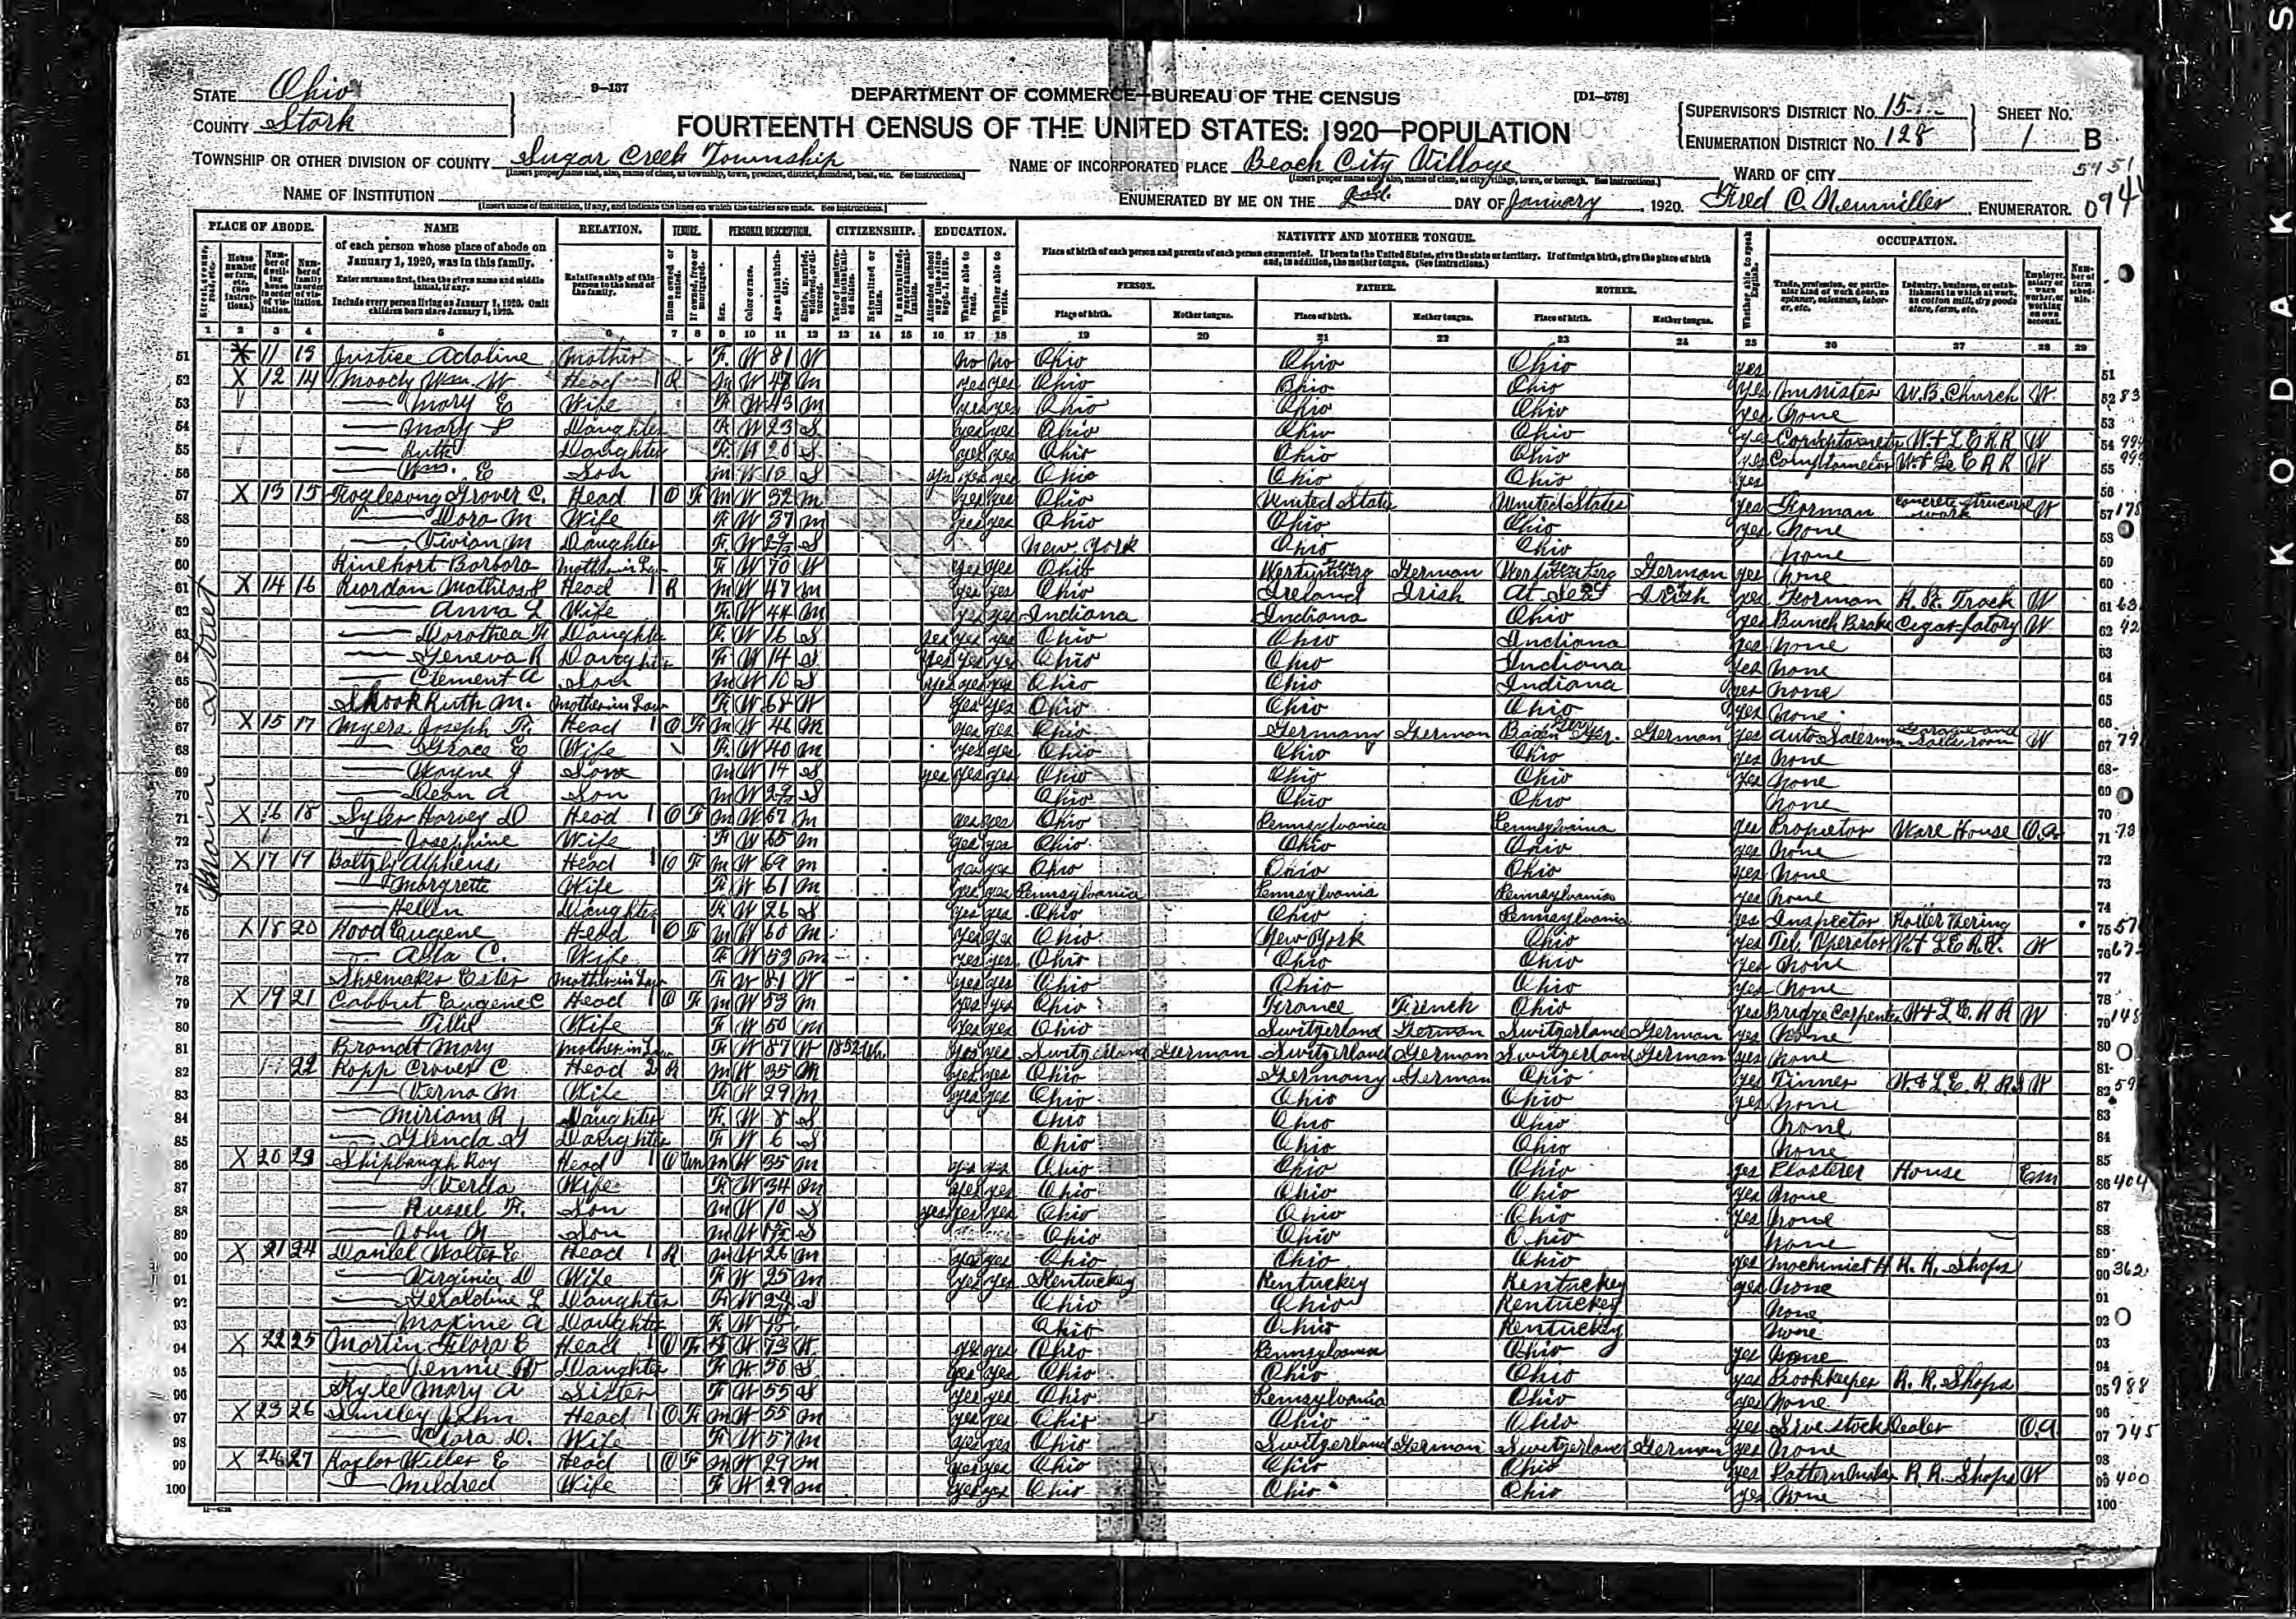 STATE Ohio
COUNTY Stark
9-137
DEPARTMENT OF COMMERCE—BUREAU OF THE CENSUS
[D1-578]
FOURTEENTH CENSUS OF THE UNITED STATES: 1920—POPULATION
SUPERVISOR'S DISTRICT No. 15
ENUMERATION DISTRICT No. 128
SHEET No. 1 B
TOWNSHIP OR OTHER DIVISION OF COUNTY Sugar Creek Township
NAME OF INCORPORATED PLACE Beach City Village
WARD OF CITY
5951
NAME OF INSTITUTION
ENUMERATED BY ME ON THE 2nd. DAY OF January, 1920. Fred C. Neumiller ENUMERATOR.
094
PLACE OF ABODE. NAME RELATION. TENURE. PERSONAL DESCRIPTION. CITIZENSHIP. EDUCATION. NATIVITY AND MOTHER TONGUE. OCCUPATION.
of each person whose place of abode on January 1, 1920, was in this family.
Enter surname first, then the given name and middle initial, if any.
Include every person living on January 1, 1920. Omit children born since January 1, 1920.
Relationship of this person to the head of the family.
Place of birth of each person and parents of each person enumerated. If born in the United States, give the state or territory. If of foreign birth, give the place of birth and, in addition, the mother tongue. (See Instructions.)
PERSON. FATHER. MOTHER.
Place of birth. Mother tongue. Place of birth. Mother tongue. Place of birth. Mother tongue.
1 2 3 4 5 6 7 8 9 10 11 12 13 14 15 16 17 18 19 20 21 22 23 24 25 26 27 28 29
Main Street
51 X 11 13 Justice Adaline Mother F W 81 W no no Ohio Ohio Ohio yes
52 X 12 14 Moody Wm. W Head 1 R M W 48 M yes yes Ohio Ohio Ohio yes Minister U.B. Church W 83
53 — Mary E Wife F W 43 M yes yes Ohio Ohio Ohio yes none
54 — Mary Daughter F W 23 S yes yes Ohio Ohio Ohio yes Comptometer W. & L E RR W
55 — Ruth Daughter F W 20 S yes yes Ohio Ohio Ohio yes Comptometer W. & L E R R W
56 — Wm. E Son M W S yes yes yes Ohio Ohio Ohio yes
57 X 13 15 Foglesong Grover C. Head 1 O F M W 32 M yes yes Ohio United States United States yes Forman concrete work W 178
58 — Dora M Wife F W 37 M yes yes Ohio Ohio Ohio yes none
59 — Vivian M Daughter F W S New York Ohio Ohio none
60 Rinehort Barbara Mother in Law F W 70 W yes yes Ohio German German yes none
61 X 14 16 Riordan Head 1 R M W 47 M yes yes Ohio Ireland Irish At Sea Irish yes Forman R.R. Track W 63
62 — Anna L Wife F W 44 M yes yes Indiana Indiana Ohio yes Bunch Brake Cigar fatory W 42
63 — Dorothea Daughter F W 16 S yes yes yes Ohio Ohio Indiana yes none
64 — Geneva R Daughter F W 14 S yes yes yes Ohio Ohio Indiana yes none
65 — Clement A Son M W 10 S yes yes yes Ohio Ohio Indiana yes none
66 Shook Ruth M. Mother in Law F W 68 W yes yes Ohio Ohio Ohio yes none
67 X 15 17 Myers Joseph F. Head 1 O F M W 46 M yes yes Ohio Germany German Baden Ger. German yes Auto Salesman Garage and Salesroom W 79
68 — Grace E Wife F W 40 M yes yes Ohio Ohio Ohio yes none
69 — Wayne J Son M W 14 S yes yes yes Ohio Ohio Ohio yes none
70 — Dean A Son M W S Ohio Ohio Ohio none
71 X 16 18 Syler Harvey D Head 1 O F M W 67 M yes yes Ohio Pennsylvania Pennsylvania yes Propietor Ware House O.A. 73
72 — Josephine Wife F W 65 M yes yes Ohio Ohio Ohio yes none
73 X 17 19 Baltzly Alpheus Head 1 O F M W 69 M yes yes Ohio Ohio Ohio yes none
74 — Margrette Wife F W 61 M yes yes Pennsylvania Pennsylvania Pennsylvania yes none
75 — Hellen Daughter F W 26 S yes yes Ohio Ohio Pennsylvania yes Inspector 57
76 X 18 20 Hood Eugene Head 1 O F M W 60 M yes yes Ohio New York Ohio yes Tel. Operator W & L E R.R. W
77 — C. Wife F W 53 M yes yes Ohio Ohio Ohio yes none
78 Shoemaker Ester Mother in Law F W 81 W yes yes Ohio Ohio Ohio yes none
79 X 19 21 Cabbut Eugene C Head 1 O F M W 53 M yes yes Ohio France French Ohio yes Bridge Carpenter W & L E. R R W 148
80 — Tillie Wife F W 50 M yes yes Ohio Switzerland German Switzerland German yes none
81 Brandt Mary Mother in Law F W 87 W 1852 yes yes Switzerland German Switzerland German Switzerland German yes none
82 22 Kopp Crover C Head 2 R M W 35 M yes yes Ohio Germany German Ohio yes Tinner W & L E. R. R. W
83 — Verna M Wife F W 29 M yes yes Ohio Ohio Ohio yes none
84 — Miriam R Daughter F W 8 S Ohio Ohio Ohio none
85 — Glenda Daughter F W 6 S Ohio Ohio Ohio none
86 X 20 23 Shipbaugh Roy Head 1 O M W 35 M yes yes Ohio Ohio Ohio yes Plasterer House Em 404
87 — Verda Wife F W 34 M yes yes Ohio Ohio Ohio yes none
88 — Russel F. Son M W 10 S yes yes yes Ohio Ohio Ohio yes none
89 — John Son M W S Ohio Ohio Ohio none
90 X 21 24 Walter E Head 1 R M W 26 M yes yes Ohio Ohio Ohio yes Mochinist R. R. Shops 362
91 — Virginia D Wife F W 25 M yes yes Kentuckey Kentuckey Kentuckey yes none
92 — Geraldine L Daughter F W S Ohio Ohio Kentuckey none
93 — Maxine A Daughter F W Ohio Ohio Kentuckey none
94 X 22 25 Martin Flora E Head 1 O F F W 73 W yes yes Ohio Pennsylvania Ohio yes none
95 — Jennie Daughter F W 50 S yes yes Ohio Ohio Ohio yes Bookkeeper R. R. Shops 988
96 Kyle Mary A Sister F W 55 S yes yes Ohio Pennsylvania Ohio yes none
97 X 23 26 John Head 1 O F M W 55 M yes yes Ohio Ohio Ohio yes Live Stock Dealer O.A. 745
98 — Clara D. Wife F W 57 M yes yes Ohio Switzerland German Switzerland German yes none
99 X 24 27 Kaylor Willer E Head 1 O F M W 29 M yes yes Ohio Ohio Ohio yes R. R. Shops W 400
100 — Mildred Wife F W 29 M yes yes Ohio Ohio Ohio yes none
KODAK S